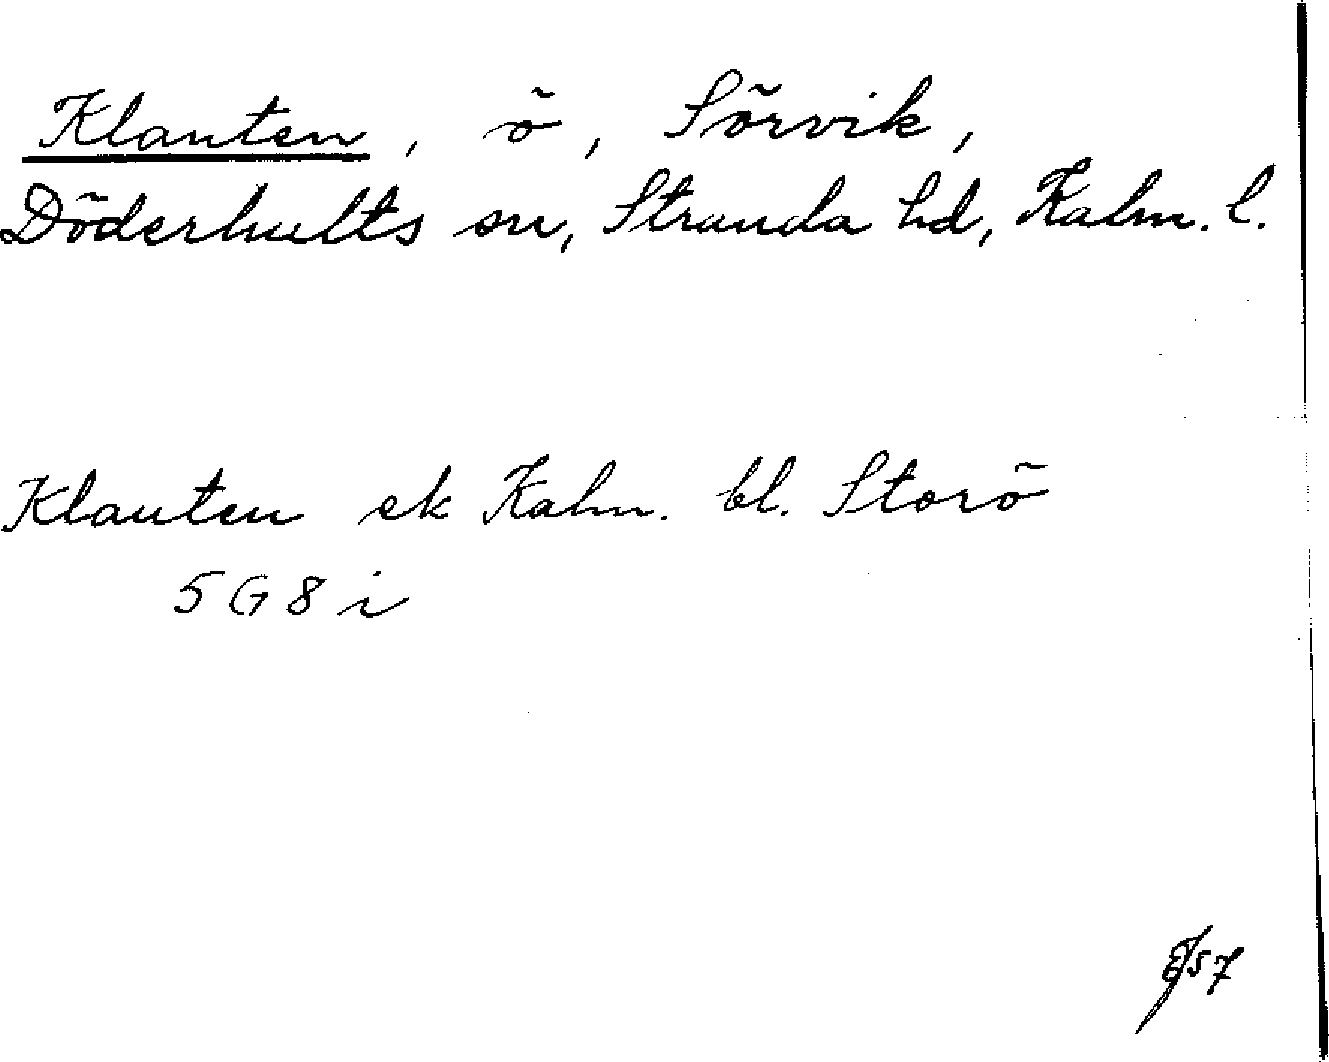 Klauten, ö, Sörvik,
Döderhults sn, Stranda hd, Kalm. l.
Klauten ek Kalm. bl. Storö
5 G 8 i
57